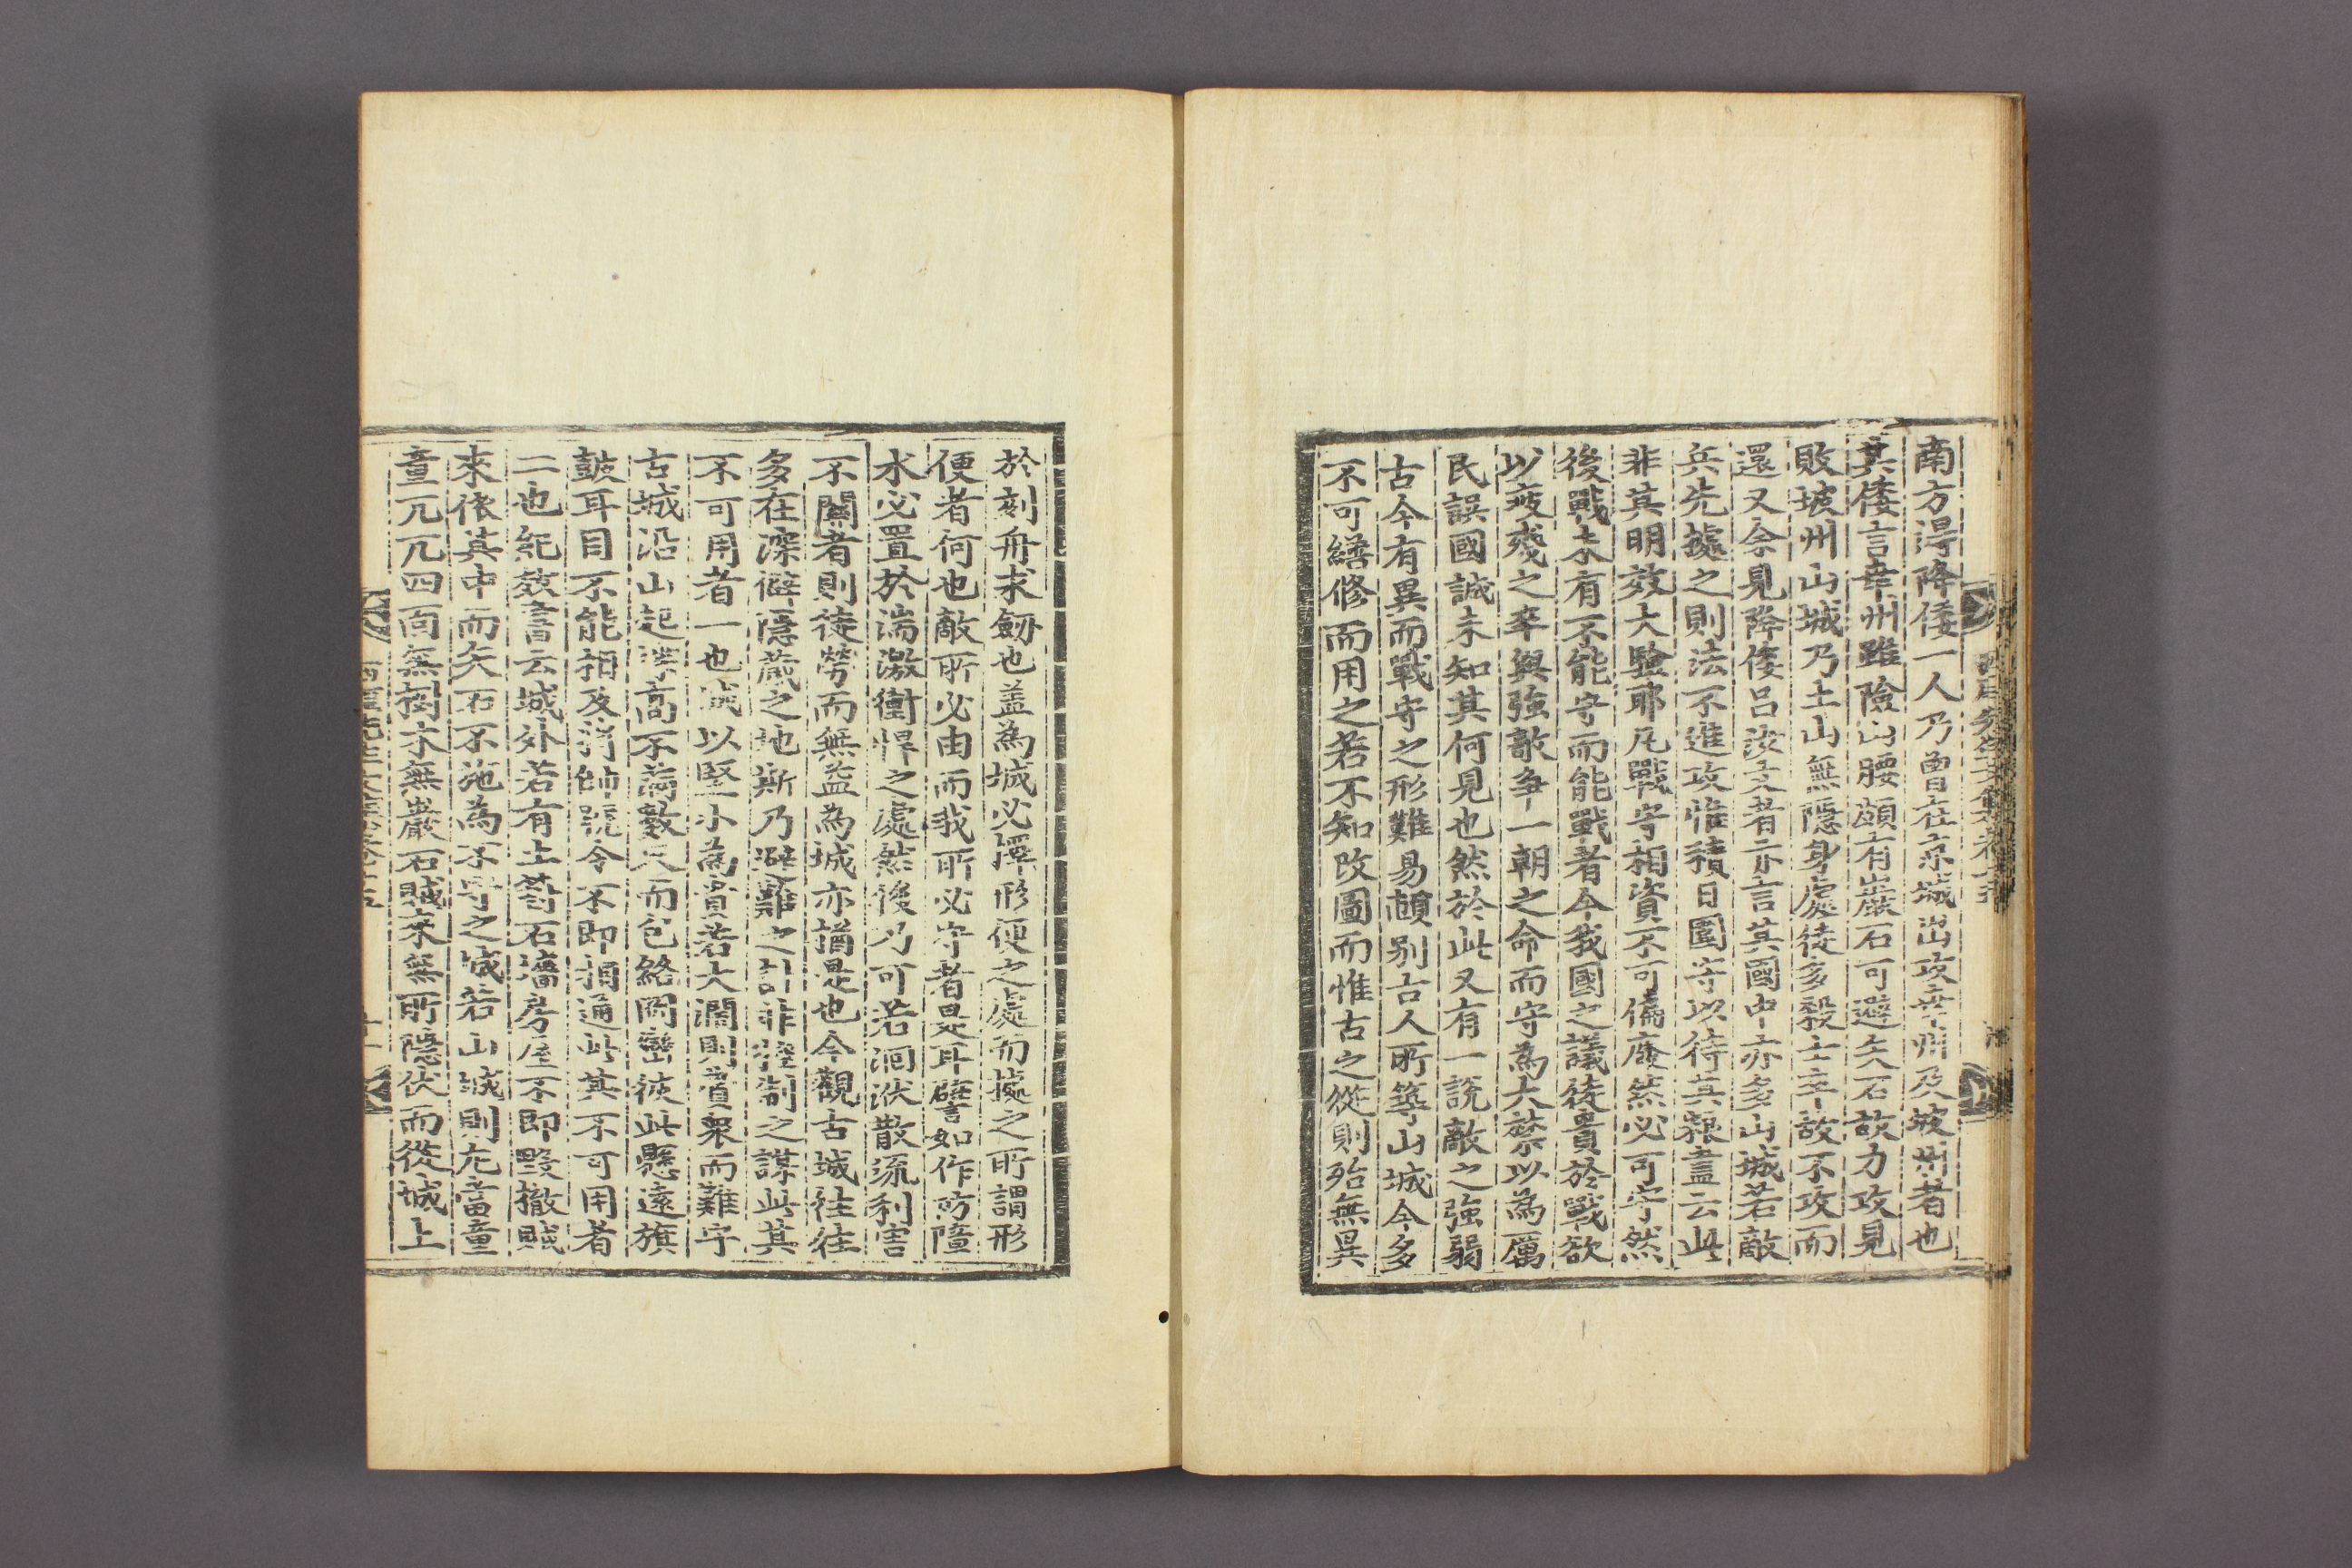 南方得降倭一人乃曾在京城出攻幸州及坡州者也
其倭言幸州雖險山腰頗有巖石可避矢石故力攻見
敗坡州山城乃土山無隱身處徒多殺士卒故不攻而
還又余見降倭呂汝文者亦言其國中亦多山城若敵
兵先據之則法不進攻惟積日圍守以待其粮盡云此
非其明效大驗耶凡戰守相資不可偏廢然必可守然
後戰未有不能守而能戰者今我國之議徒貴於戰欲
以疲殘之卒與強敵爭一朝之命而守為大禁以為厲
民誤國誠未知其何見也然於此又有一說敵之強弱
古今有異而戰守之形難易頗別古人所築山城今多
不可繕修而用之若不知改圖而惟古之從則殆無異
於刻舟求劒也盖為城必擇形便之處而據之所謂形
便者何也敵所必由而我所必守者是耳譬如作防障
水必置於湍激衝悍之處然後乃可若洄洑散流利害
不關者則徒勞而無益為城亦猶是也今觀古城往往
多在深僻隱蔵之地斯乃避難之計非控制之謀此其
不可用者一也城以堅小為貴若大濶則費衆而難守
古城沿山起築高不滿數尺而包絡岡巒彼此懸遠旗
鼓耳目不能相及將帥號令不即相通此其不可用者
二也紀效書云城外若有土荀石墻房屋不即毀撤賊
來依其中而矢石不施為不守之城若山城則尤當童
童兀兀四面無樹木無巖石賊來無所隱伏而從城上
西厓先生文集卷之十五